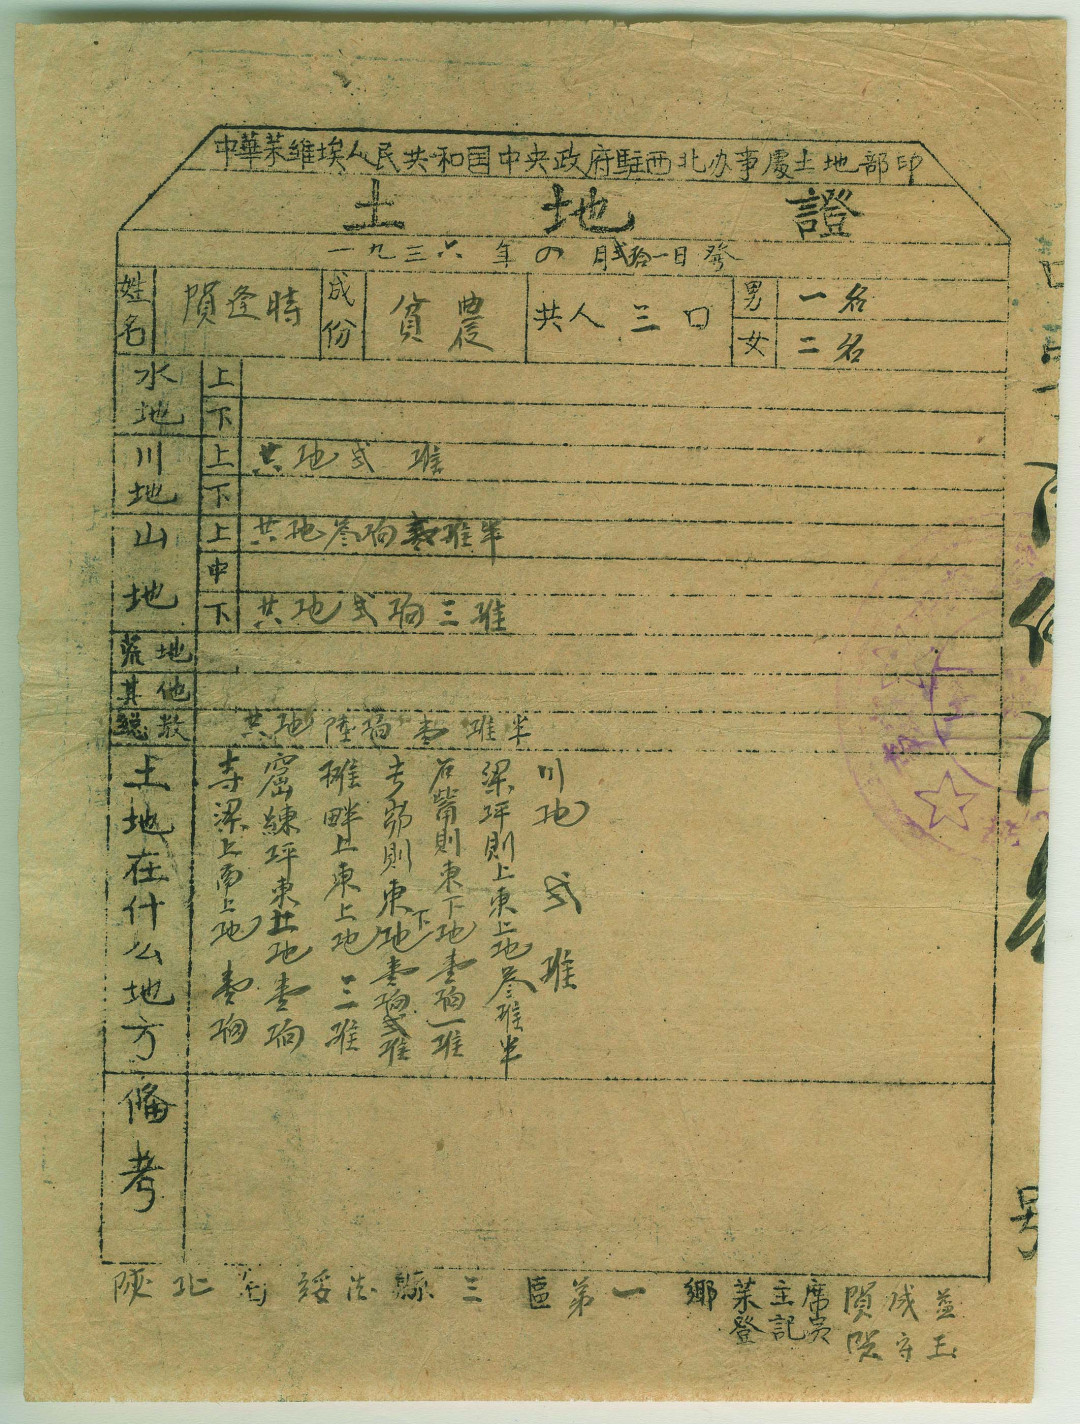 中華苏維埃人民共和国中央政府駐西北办事處土地部印
土地證
一九三六年四月弍拾一日發
姓名 貟逢時 成份 貧農 共人三口 男 一名
女 二名
水地 上
下
川地 上 共地弍堆
下
山地 上 共地叁垧 堆半
中
下 共地弍垧三堆
荒地
其他
總数 共地陸垧壹堆半
土地在什么地方
川地弍堆
梁坪則上東上地叁堆半
石 則東下地壹垧一堆
則東下地壹垧弍堆
畔上東上地三堆
窑練坪東上地壹垧
寺梁上南上地壹垧
俻考
陝北省綏德縣三區第一鄉苏主席
登記员
守玉
号